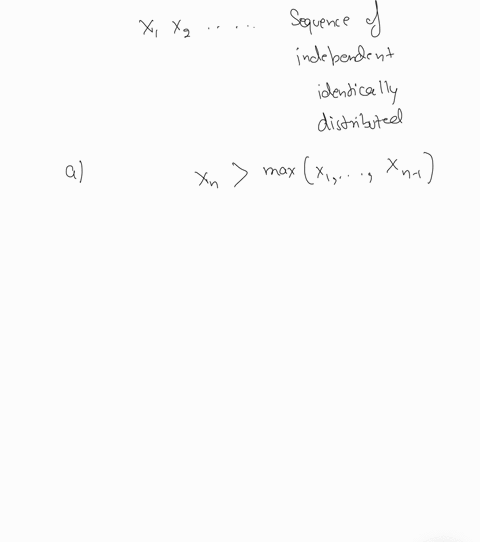 X₁ X₂ ..... Sequence of
independent
identically
distributed
a) Xₙ > max (X₁,..., Xₙ₋₁)